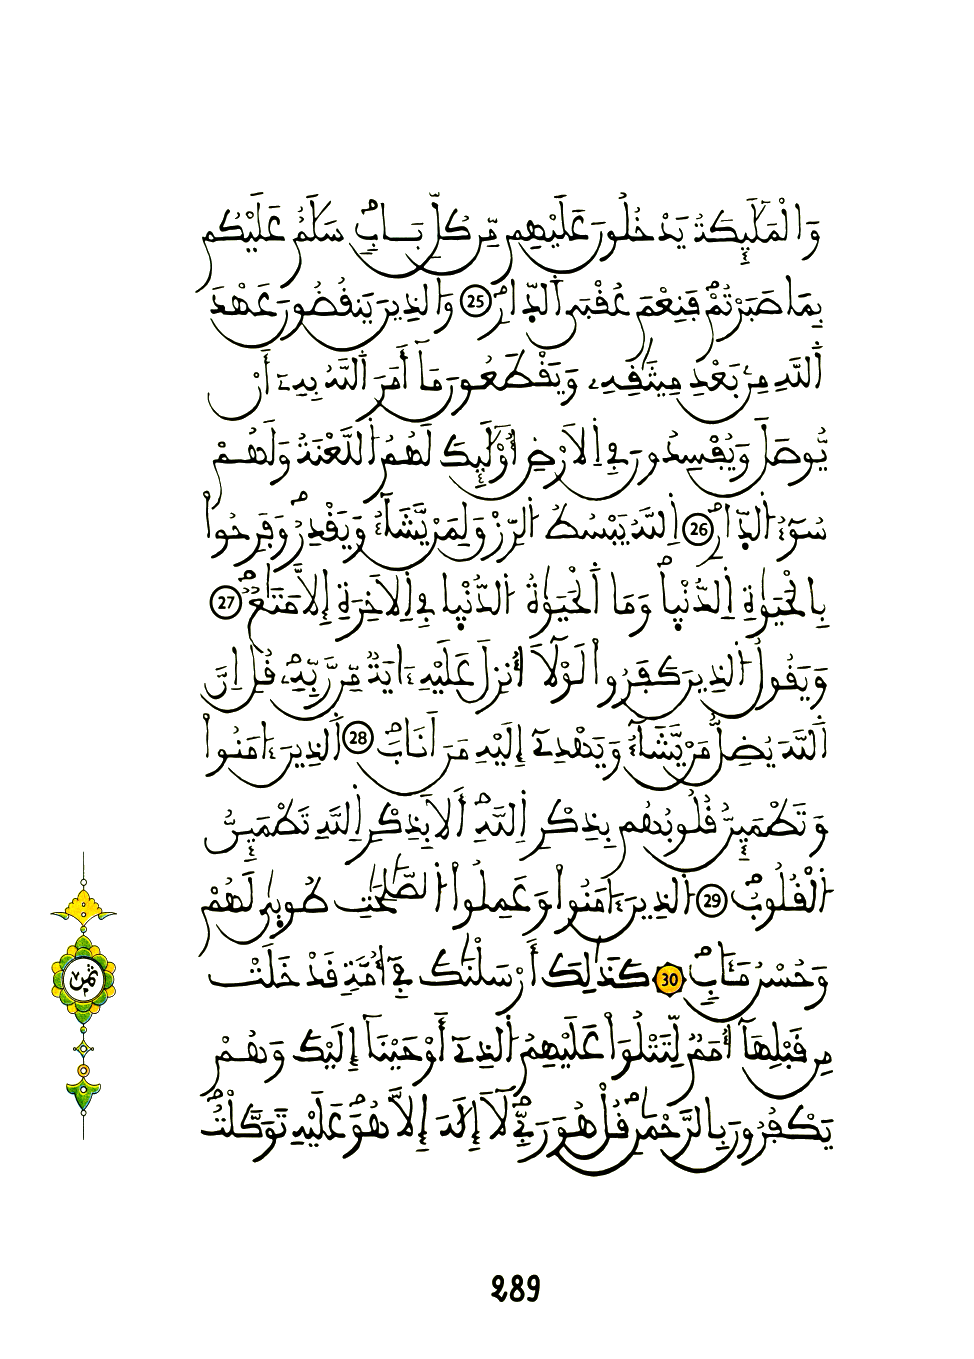 وَالْمَلَٰٓئِكَةُ يَدْخُلُونَ عَلَيْهِم مِّن كُلِّ بَابٖ سَلَٰمٌ عَلَيْكُم
بِمَا صَبَرْتُمْ فَنِعْمَ عُقْبَى اَ۬لدّ۪ارِۖ 25 وَالذِينَ يَنقُضُونَ عَهْدَ
اَ۬للَّهِ مِنۢ بَعْدِ مِيثَٰقِهِۦ وَيَقْطَعُونَ مَآ أَمَرَ اَ۬للَّهُ بِهِۦٓ أَنْ
يُّوصَلَ وَيُفْسِدُونَ فِے اِ۬لَارْضِ أُوْلَٰٓئِكَ لَهُمُ اُ۬للَّعْنَةُ وَلَهُمْ
سُوٓءُ اُ۬لدّ۪ارِۖ 26 اِ۬للَّهُ يَبْسُطُ اُ۬لرِّزْقَ لِمَنْ يَّشَآءُ وَيَقْدِرُۖ وَفَرِحُواْ
بِالْحَيَوٰةِ اِ۬لدُّنْي۪اۖ وَمَا اَ۬لْحَيَوٰةُ اُ۬لدُّنْي۪ا فِے اِ۬لَاخِرَةِ إِلَّا مَتَٰعٞۖ 27
وَيَقُولُ اُ۬لذِينَ كَفَرُواْ لَوْلَآ أُنزِلَ عَلَيْهِ ءَايَةٞ مِّن رَّبِّهِۦۖ قُلِ اِنَّ
اَ۬للَّهَ يُضِلُّ مَنْ يَّشَآءُ وَيَهْدِےٓ إِلَيْهِ مَنَ اَنَابَۖ 28 اَ۬لذِينَ ءَامَنُواْ
وَتَطْمَئِنُّ قُلُوبُهُم بِذِكْرِ اِ۬للَّهِۖ أَلَا بِذِكْرِ اِ۬للَّهِ تَطْمَئِنُّ
اُ۬لْقُلُوبُۖ 29 اُ۬لذِينَ ءَامَنُواْ وَعَمِلُواْ اُ۬لصَّٰلِحَٰتِ طُوب۪ىٰ لَهُمْ
وَحُسْنُ مَـَٔابٖۖ 30 كَذَٰلِكَ أَرْسَلْنَٰكَ فِےٓ أُمَّةٖ قَدْ خَلَتْ
مِن قَبْلِهَآ أُمَمٞ لِّتَتْلُوَاْ عَلَيْهِمُ اُ۬لذِےٓ أَوْحَيْنَآ إِلَيْكَ وَهُمْ
يَكْفُرُونَ بِالرَّحْمَٰنِۖ قُلْ هُوَ رَبِّے لَآ إِلَٰهَ إِلَّا هُوَۖ عَلَيْهِ تَوَكَّلْتُ
ثمن
289